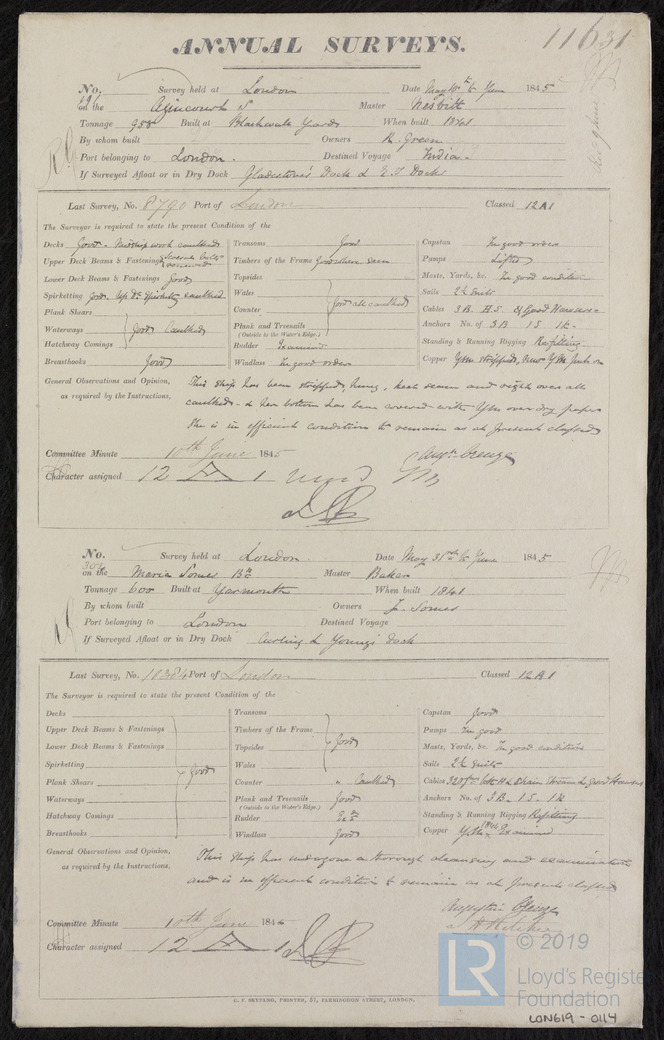 ANNUAL SURVEYS.
11631
No. 296 Survey held at London Date May 6 June 1845
on the Agincourt S Master Nesbitt
Tonnage 958 Built at Blackwall Yard When built 1841
By whom built Owners R. Green
Port belonging to London. Destined Voyage India
If Surveyed Afloat or in Dry Dock Gladstone's Dock & E.I Docks
Last Survey, No. 8790 Port of London Classed 12 A 1
The Surveyor is required to state the present Condition of the
Decks Good. Midship work caulked
Upper Deck Beams & Fastenings Several bolts renewed
Lower Deck Beams & Fastenings Good
Spirketting Good. Up Dk Spirketg caulked
Plank Shears
Waterways Good Caulked
Hatchway Comings
Breasthooks Good
Transoms Good
Timbers of the Frame Good where seen
Topsides
Wales
Counter Good all caulked
Plank and Treenails
(Outside to the Water's Edge.)
Rudder Examined
Windlass In good order
Capstan In good order
Pumps Lifted
Masts, Yards, &c. In good condition
Sails 2½ Suits
Cables 3 B. H.S. & Good Hawsers
Anchors No. of 3 B 1 S 1 K
Standing & Running Rigging Refitting
Copper Y.M. stripped, new Y.M. put on
General Observations and Opinion, This Ship has been stripped, keel seam and right over all
as required by the Instructions, caulked & her bottom has been covered with Y.M over dry paper
She is in efficient condition to remain as at present classed
Committee Minute 10th June 1845 Augn. Creuze
Character assigned 12 A 1
No. 306 Survey held at London. Date May 31st to June 1845
on the Maria Somes Bk Master Baker
Tonnage 600 Built at Yarmouth When built 1841
By whom built Owners J. Somes
Port belonging to London Destined Voyage
If Surveyed Afloat or in Dry Dock Curling & Young's Dock
Last Survey, No. 10384 Port of London Classed 12 A 1
The Surveyor is required to state the present Condition of the
Decks
Upper Deck Beams & Fastenings
Lower Deck Beams & Fastenings
Spirketting
Plank Shears Good
Waterways
Hatchway Comings
Breasthooks
Transoms
Timbers of the Frame
Topsides Good
Wales
Counter " Caulked
Plank and Treenails Good
(Outside to the Water's Edge.)
Rudder Exd
Windlass Good
Capstan Good
Pumps In good
Masts, Yards, &c. In good condition
Sails 2½ Suits
Cables 320 & Good Hawsers
Anchors No. of 3 B. 1 S. 1 K
Standing & Running Rigging Refitting
Copper Y.M. 1844 Examined
General Observations and Opinion, This Ship has undergone a thorough cleansing and examination
as required by the Instructions. and is in efficient condition to remain as at present classed
Augustin Creuze
Committee Minute 10th June 1845
Character assigned 12 A 1
C. F. SEYFANG, PRINTER, 57, FARRINGDON STREET, LONDON.
LR © 2019
Lloyd's Register
Foundation
LON619 - 0114